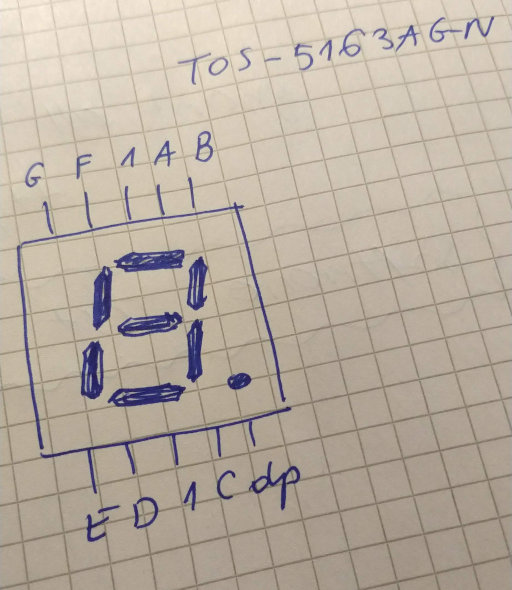 TOS-5163AG-N
G F 1 A B
E D 1 C dp